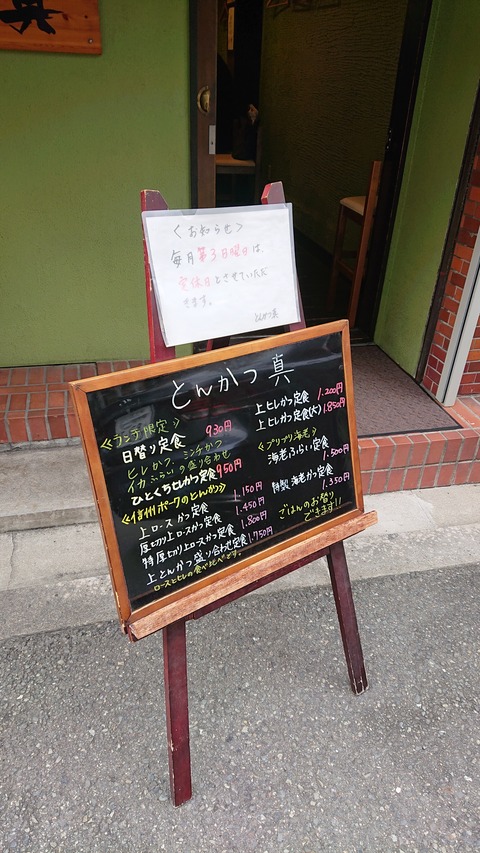 真
<お知らせ>
毎月第3日曜日は、
定休日とさせていただ
きます。
とんかつ真
とんかつ 真
≪ランチ限定≫
日替り定食 930円
ヒレかつ、ミンチかつ
イカふらいの盛り合わせ
ひとくちヒレかつ定食 950円
≪信州ポークのとんかつ≫
上ロースかつ定食 1.150円
厚切り上ロースかつ定食 1.450円
特厚切り上ロースかつ定食 1.800円
上とんかつ盛り合わせ定食 1.750円
ロースとヒレの食べ比べです。
上ヒレかつ定食 1.200円
上ヒレかつ定食(大) 1.850円
≪プリプリ海老≫
海老ふらい定食 1.500円
特製海老かつ定食 1.350円
ごはんのお替り
できます!!